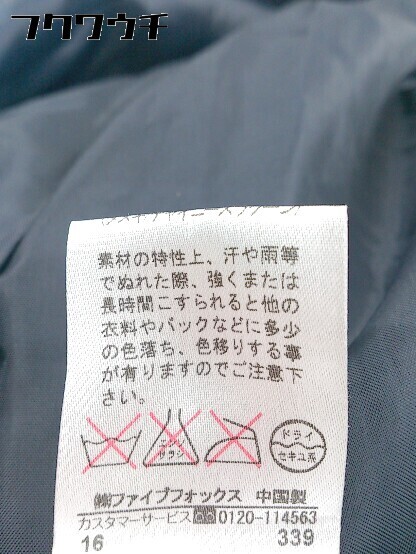 フクワウチ
素材の特性上、汗や雨等
でぬれた際、強くまたは
長時間こすられると他の
衣料やバックなどに多少
の色落ち、色移りする事
が有りますのでご注意下
さい。
エンソ
サラシ
ドライ
セキユ系
㈱ファイブフォックス 中国製
カスタマーサービス 0120-114563
16 339